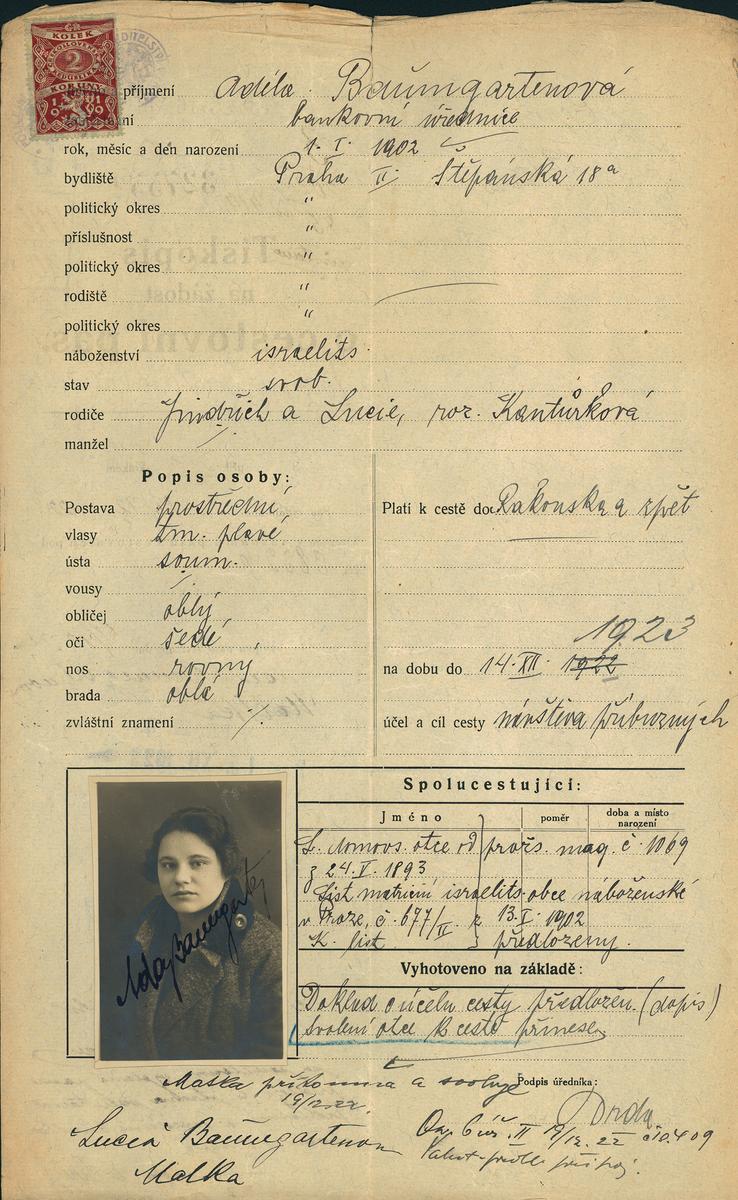 KOLEK
2
KORUNY
příjmení Adéla Baumgartenová
bankovní úřednice
rok, měsíc a den narození 1. I. 1902
bydliště Praha II. Štěpánská 18a
politický okres "
příslušnost "
politický okres "
rodiště "
politický okres
náboženství israelits.
stav svob.
rodiče Jindřich a Lucie, roz. Kantůrková
manžel
Popis osoby:
Postava prostřední
vlasy tm. plavé
ústa soum.
vousy
obličej oblý
oči šedé
nos rovný
brada oblá
zvláštní znamení
Platí k cestě do Rakouska a zpět
1923
na dobu do 14. XII. 1922
účel a cíl cesty návštěva příbuzných
Spolucestující:
Jméno poměr doba a místo narození
otce od praž. mag. č. 1069
z 24. V. 1893
List matriční israelits. obce náboženské
v Praze, č. 677/II z 13. I. 1902
K. list předloženy.
Vyhotoveno na základě:
Doklad o účelu cesty předložen. (dopis)
svolení otce k cestě přinese
Ada Baumgarten
Matka přítomna a svoluje
19/12.22.
Podpis úředníka:
Drda
Lucia Baumgartenova
Matka